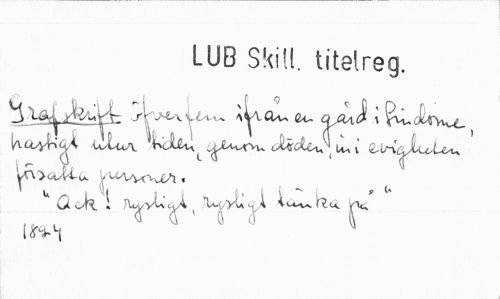 LUB Skill. titelreg.
Grafskrift öfver fem ifrån en gård i Lindome,
hastigt utur tiden, genom döden, in i evigheten
försatta personer.
"Ack! rysligt, rysligt tänka på"
1824